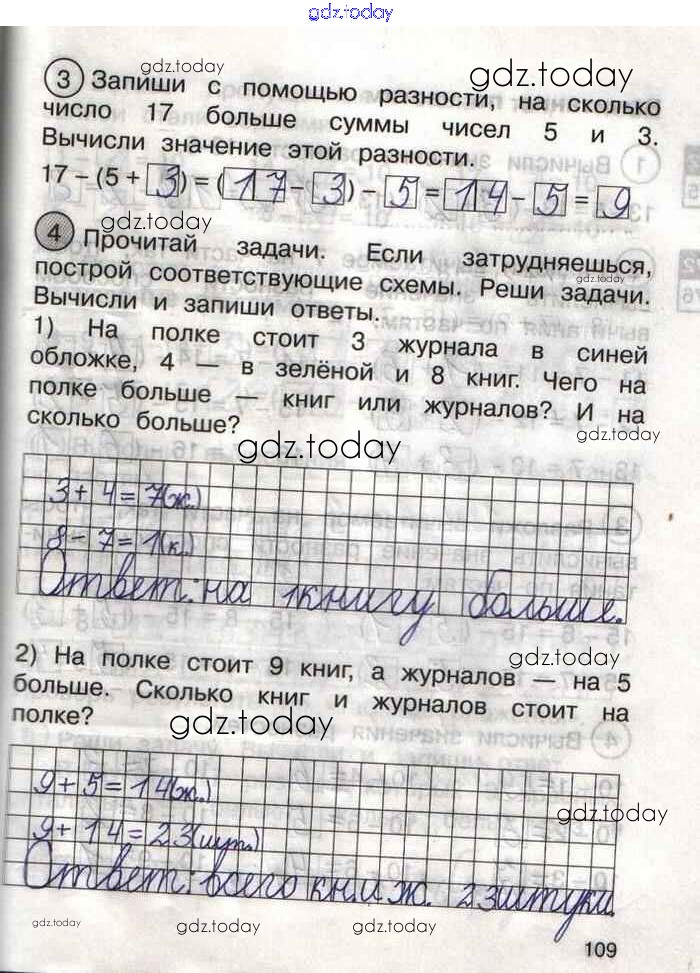 gdz.today
gdz.today
gdz.today
3 Запиши с помощью разности, на сколько
число 17 больше суммы чисел 5 и 3.
Вычисли значение этой разности.
17 – (5 + 3) = (17 – 3) – 5 = 14 – 5 = 9
gdz.today
4 Прочитай задачи. Если затрудняешься,
gdz.today
построй соответствующие схемы. Реши задачи.
Вычисли и запиши ответы.
1) На полке стоит 3 журнала в синей
обложке, 4 — в зелёной и 8 книг. Чего на
полке больше — книг или журналов? И на
сколько больше?
gdz.today
gdz.today
3 + 4 = 7(ж.)
8 – 7 = 1(к.)
Ответ: на 1 книгу больше.
gdz.today
2) На полке стоит 9 книг, а журналов — на 5
больше. Сколько книг и журналов стоит на
полке?
gdz.today
9 + 5 = 14(ж.)
gdz.today
9 + 14 = 23(шт.)
Ответ: всего кн. и ж. 23 штуки.
gdz.today
gdz.today
gdz.today
109